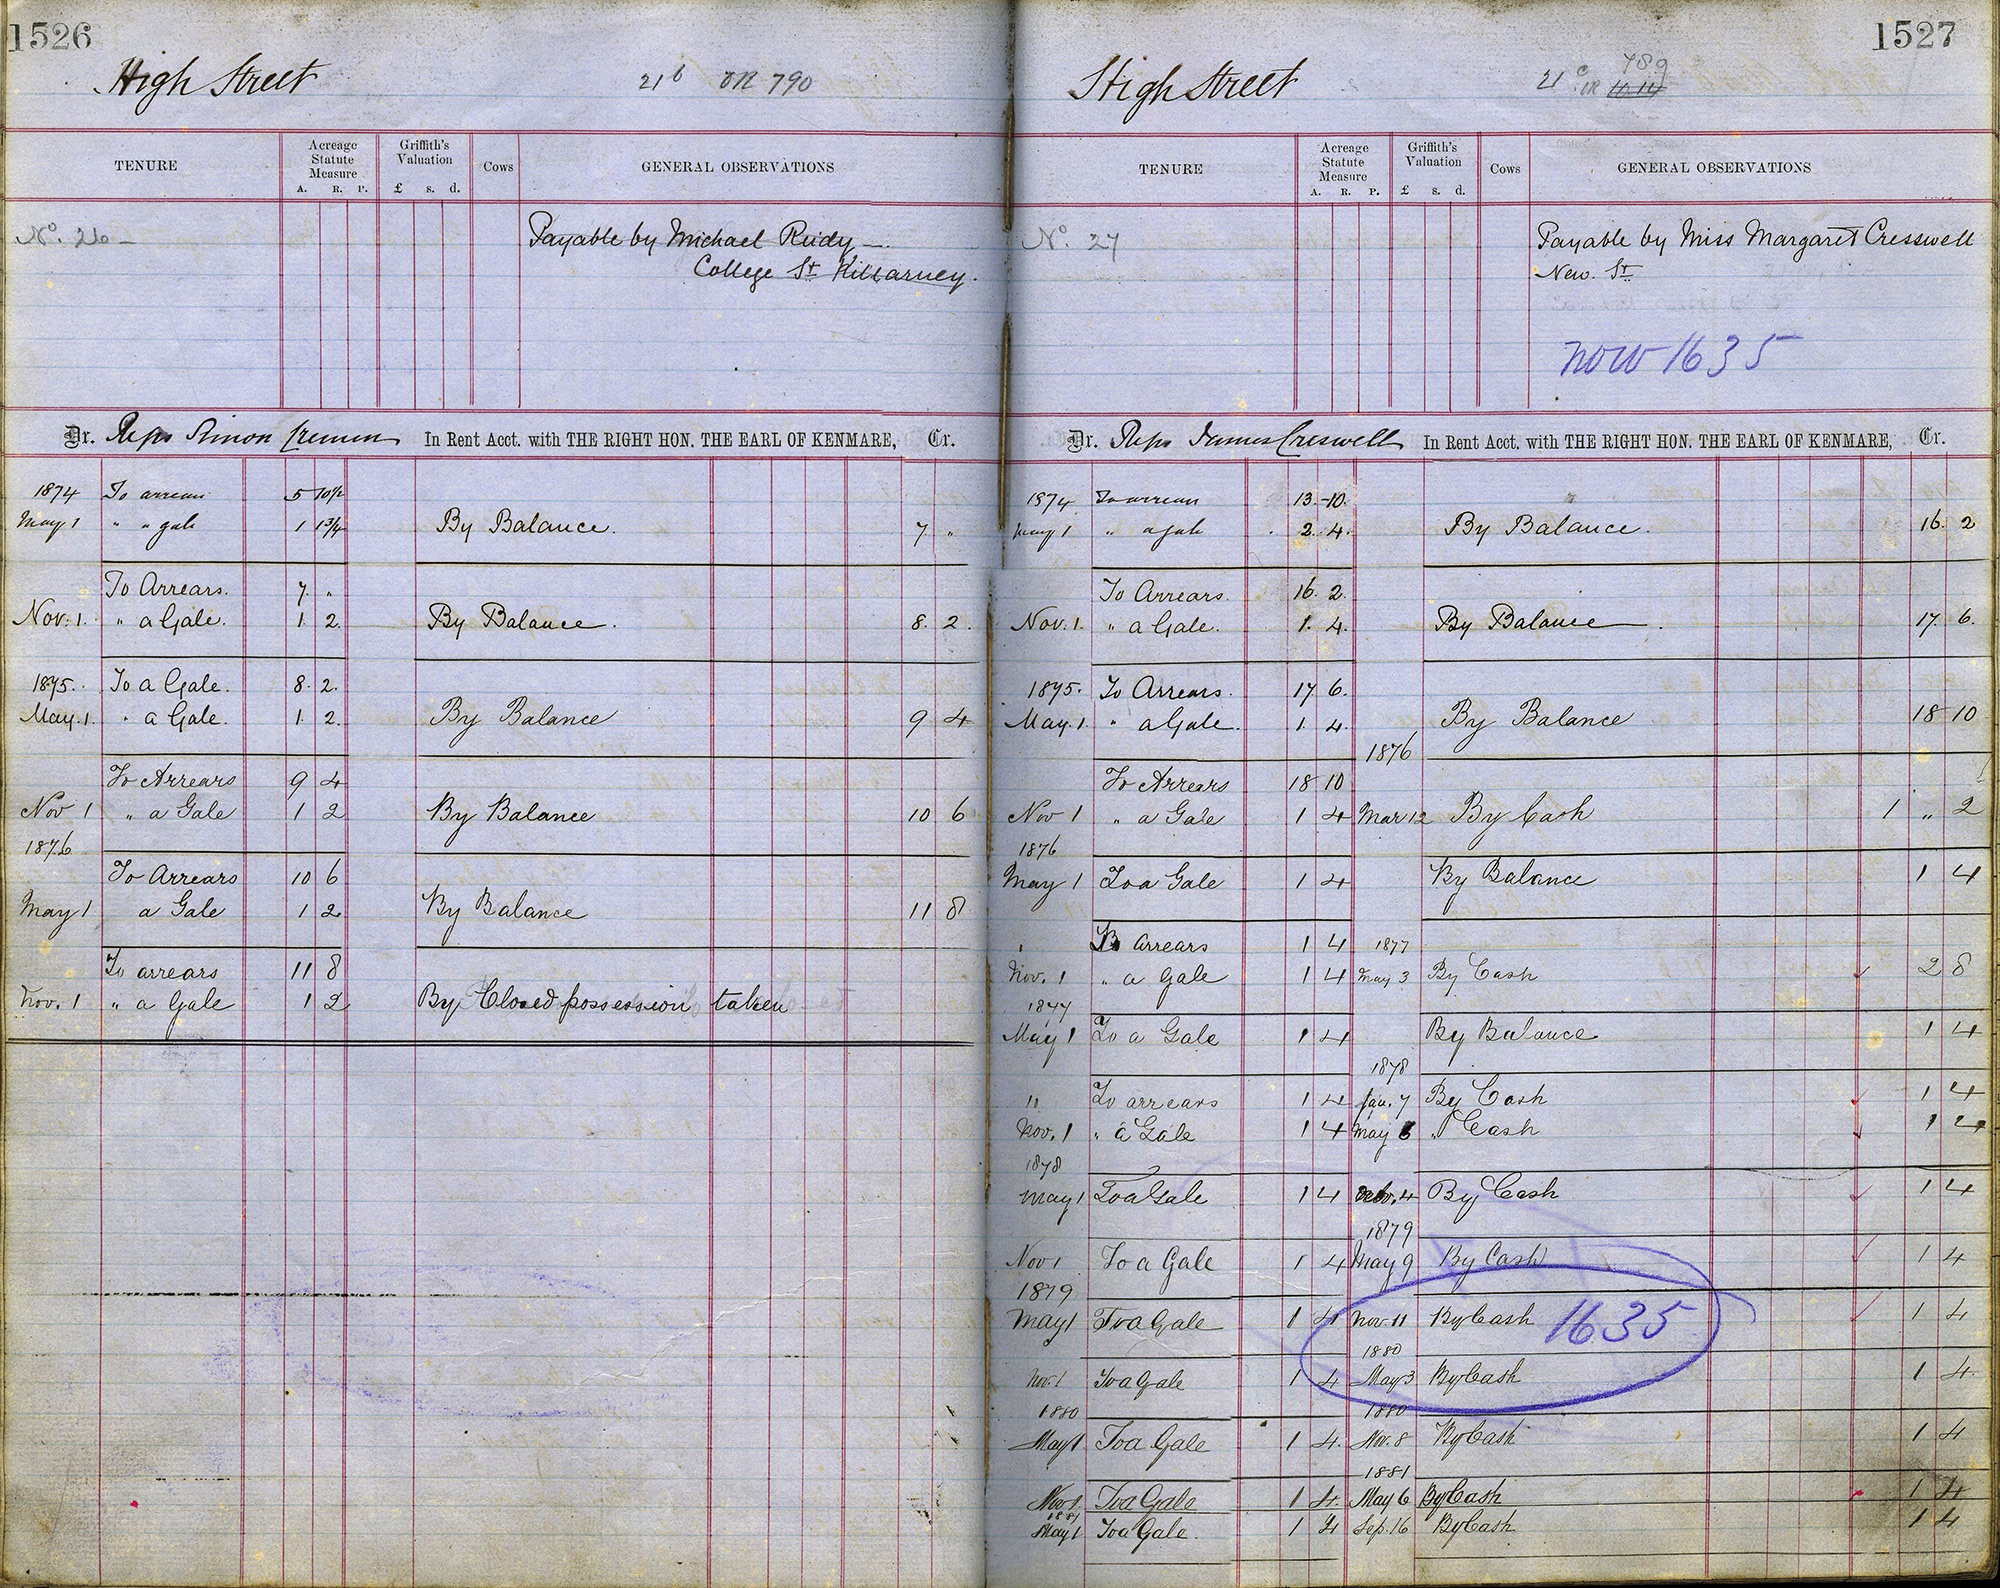 1526
High Street 21b OR 790
TENURE Acreage Statute Measure A. R. P. Griffith's Valuation £ s. d. Cows GENERAL OBSERVATIONS
No. 26 – Payable by Michael Reidy –
College St Killarney.
Dr. Reps Simon Cremin In Rent Acct. with THE RIGHT HON. THE EARL OF KENMARE, Cr.
1874 To arrears 5 10½
May 1 " " gale 1 1¾ By Balance. 7. "
To Arrears. 7. "
Nov. 1. " a Gale. 1. 2. By Balance. 8. 2.
1875. To a Gale. 8. 2.
May. 1. " a Gale. 1. 2. By Balance 9 4
To Arrears 9 4
Nov 1 " a Gale 1 2 By Balance 10 6
1876
To Arrears 10 6
May 1 a Gale 1 2 By Balance 11 8
To arrears 11 8
Nov. 1 " a Gale 1 2 By Closed possession taken
1527
High Street 21c OR 789
TENURE Acreage Statute Measure A. R. P. Griffith's Valuation £ s. d. Cows GENERAL OBSERVATIONS
No. 27 Payable by Miss Margaret Cresswell
New. St
now 1635
Dr. Reps James Creswell In Rent Acct. with THE RIGHT HON. THE EARL OF KENMARE, Cr.
1874 To arrears 13. 10.
May 1 " a gale 2. 4. By Balance. 16. 2
To Arrears. 16. 2.
Nov. 1. " a Gale. 1. 4. By Balance. 17. 6.
1875. To Arrears. 17. 6.
May. 1. " a Gale. 1. 4. By Balance 18 10
1876
To Arrears 18 10
Nov 1 " a Gale 1 4 Mar 12 By Cash 1 " 2
1876
May 1 To a Gale 1 4 By Balance 1 4
To arrears 1 4 1877
Nov. 1 " a Gale 1 4 May 3 By Cash 2 8
1877
May 1 To a Gale 1 4 By Balance 1 4
1878
" To arrears 1 4 Jan. 7 By Cash 1 4
Nov. 1 " a Gale 1 4 May 6 " Cash 1 4
1878
May 1 To a Gale 1 4 Nov. 4 By Cash 1 4
1879
Nov 1 To a Gale 1 4 May 9 By Cash 1 4
1879
May 1 To a Gale 1 4 Nov. 11 By Cash 1635 1 4
1880
Nov. 1 To a Gale 1 4 May 3 By Cash 1 4.
1880 1880
May 1 To a Gale 1 4. Nov. 8 By Cash 1 4
1881
Nov 1. To a Gale 1 4. May 6 By Cash 1 4
1881
May 1 To a Gale. 1 4 Sep. 16 By Cash 1 4